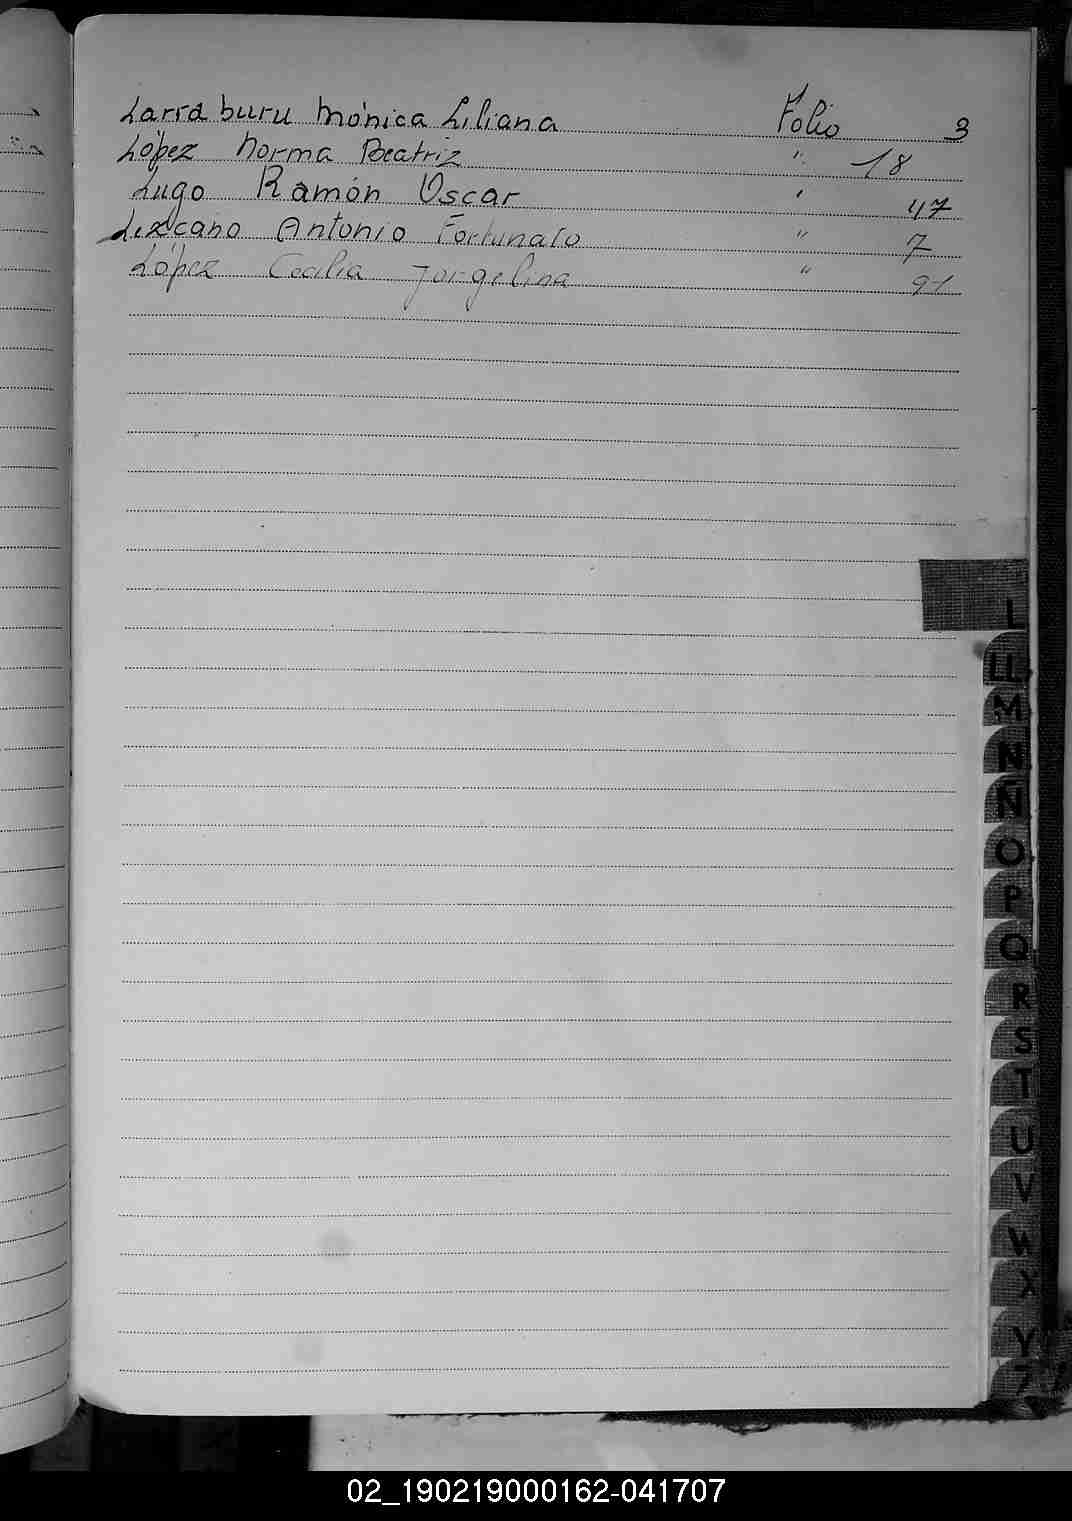 Larraburu Mónica Liliana Folio 3
López Norma Beatriz " 18
Lugo Ramón Oscar " 47
Lezcano Antonio Fortunato " 7
López Cecilia Jorgelina " 91
L
LL
M
N
Ñ
O
P
Q
R
S
T
U
V
W
X
Y
Z
02_190219000162-041707